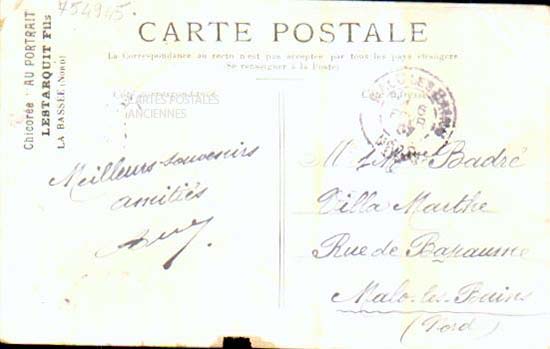 754945.
CARTE POSTALE
La Correspondance au recto n'est pas acceptée par tous les pays étrangers
(Se renseigner à la Poste)
Chicorée : AU PORTRAIT
LESTARQUIT Fils
LA BASSÉE (NORD)
CARTES POSTALES
ANCIENNES
Meilleurs souvenirs
amitiés
Badré
Villa Marthe
Rue de Bapaume
Malo-les-Bains
(Nord)